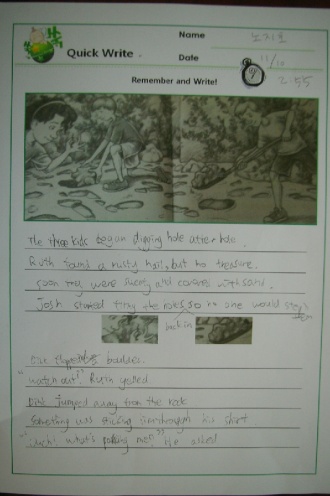 Name 노지오
Quick Write
Date 11/10
Remember and Write!
9 2:55
The three kids began digging hole after hole.
Ruth found a rusty nail, but no treasure.
Soon they were and covered with sand.
Josh started the holes so no one would
back in
boulder.
"Watch out!" Ruth yelled
Dink jumped away from the rock
Something was sticking through his shirt.
"Ouch! what's poking me?" he asked